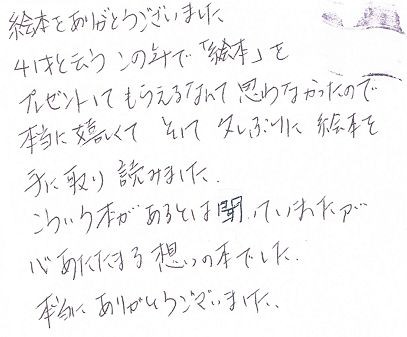 絵本をありがとうございました
41才と云うこの年で「絵本」を
プレゼントしてもらえるなんて思わなかったので
本当に嬉しくて そして久しぶりに絵本を
手に取り読みました.
こういう本があるとは聞いていましたが
心あたたまる想いの本でした.
本当にありがとうございました.